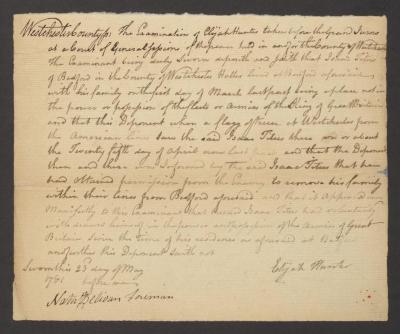 Westchester County ss The Examination of Elijah Hunter taken before the Grand Jurors
at a Court of General Sessions of the peace held in and for the County of Westchester
The Examinant being duly Sworn deposeth and saith that Isaac Titus
of Bedford in the County of Westchester Hatter lived at Bedford aforesaid
with his family on the first day of March last past being a place not in
the power or possession of the fleets or Armies of the King of Great Britain
and that this Deponent when a flagg officer at Westchester from
the American lines saw the said Isaac Titus there on or about
the Twenty fifth day of April and that the Deponent
then and there was Informed by the said Isaac Titus that he
had obtained permission from the Enemy to remove his family
within their lines from Bedford aforesaid and that it appeared
Manifestly to this Examinant that the said Isaac Titus had voluntarily
withdrawn himself into the power and possession of the Armies of Great
Britain Since the time of his residence as aforesaid at Bedford
and further this Deponent saith not
Sworn this 23 day of May
1781 before me
Elijah Hunter
Nathl Delivan Foreman